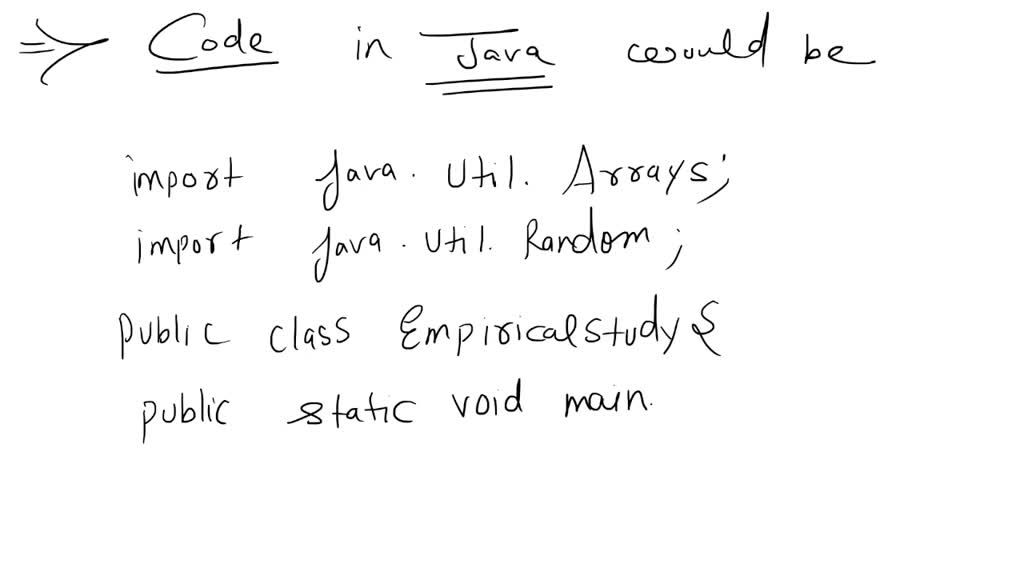 => Code in Java would be
import java.util.Arrays;
import java.util.Random;
public class Empiricalstudy{
public static void main.